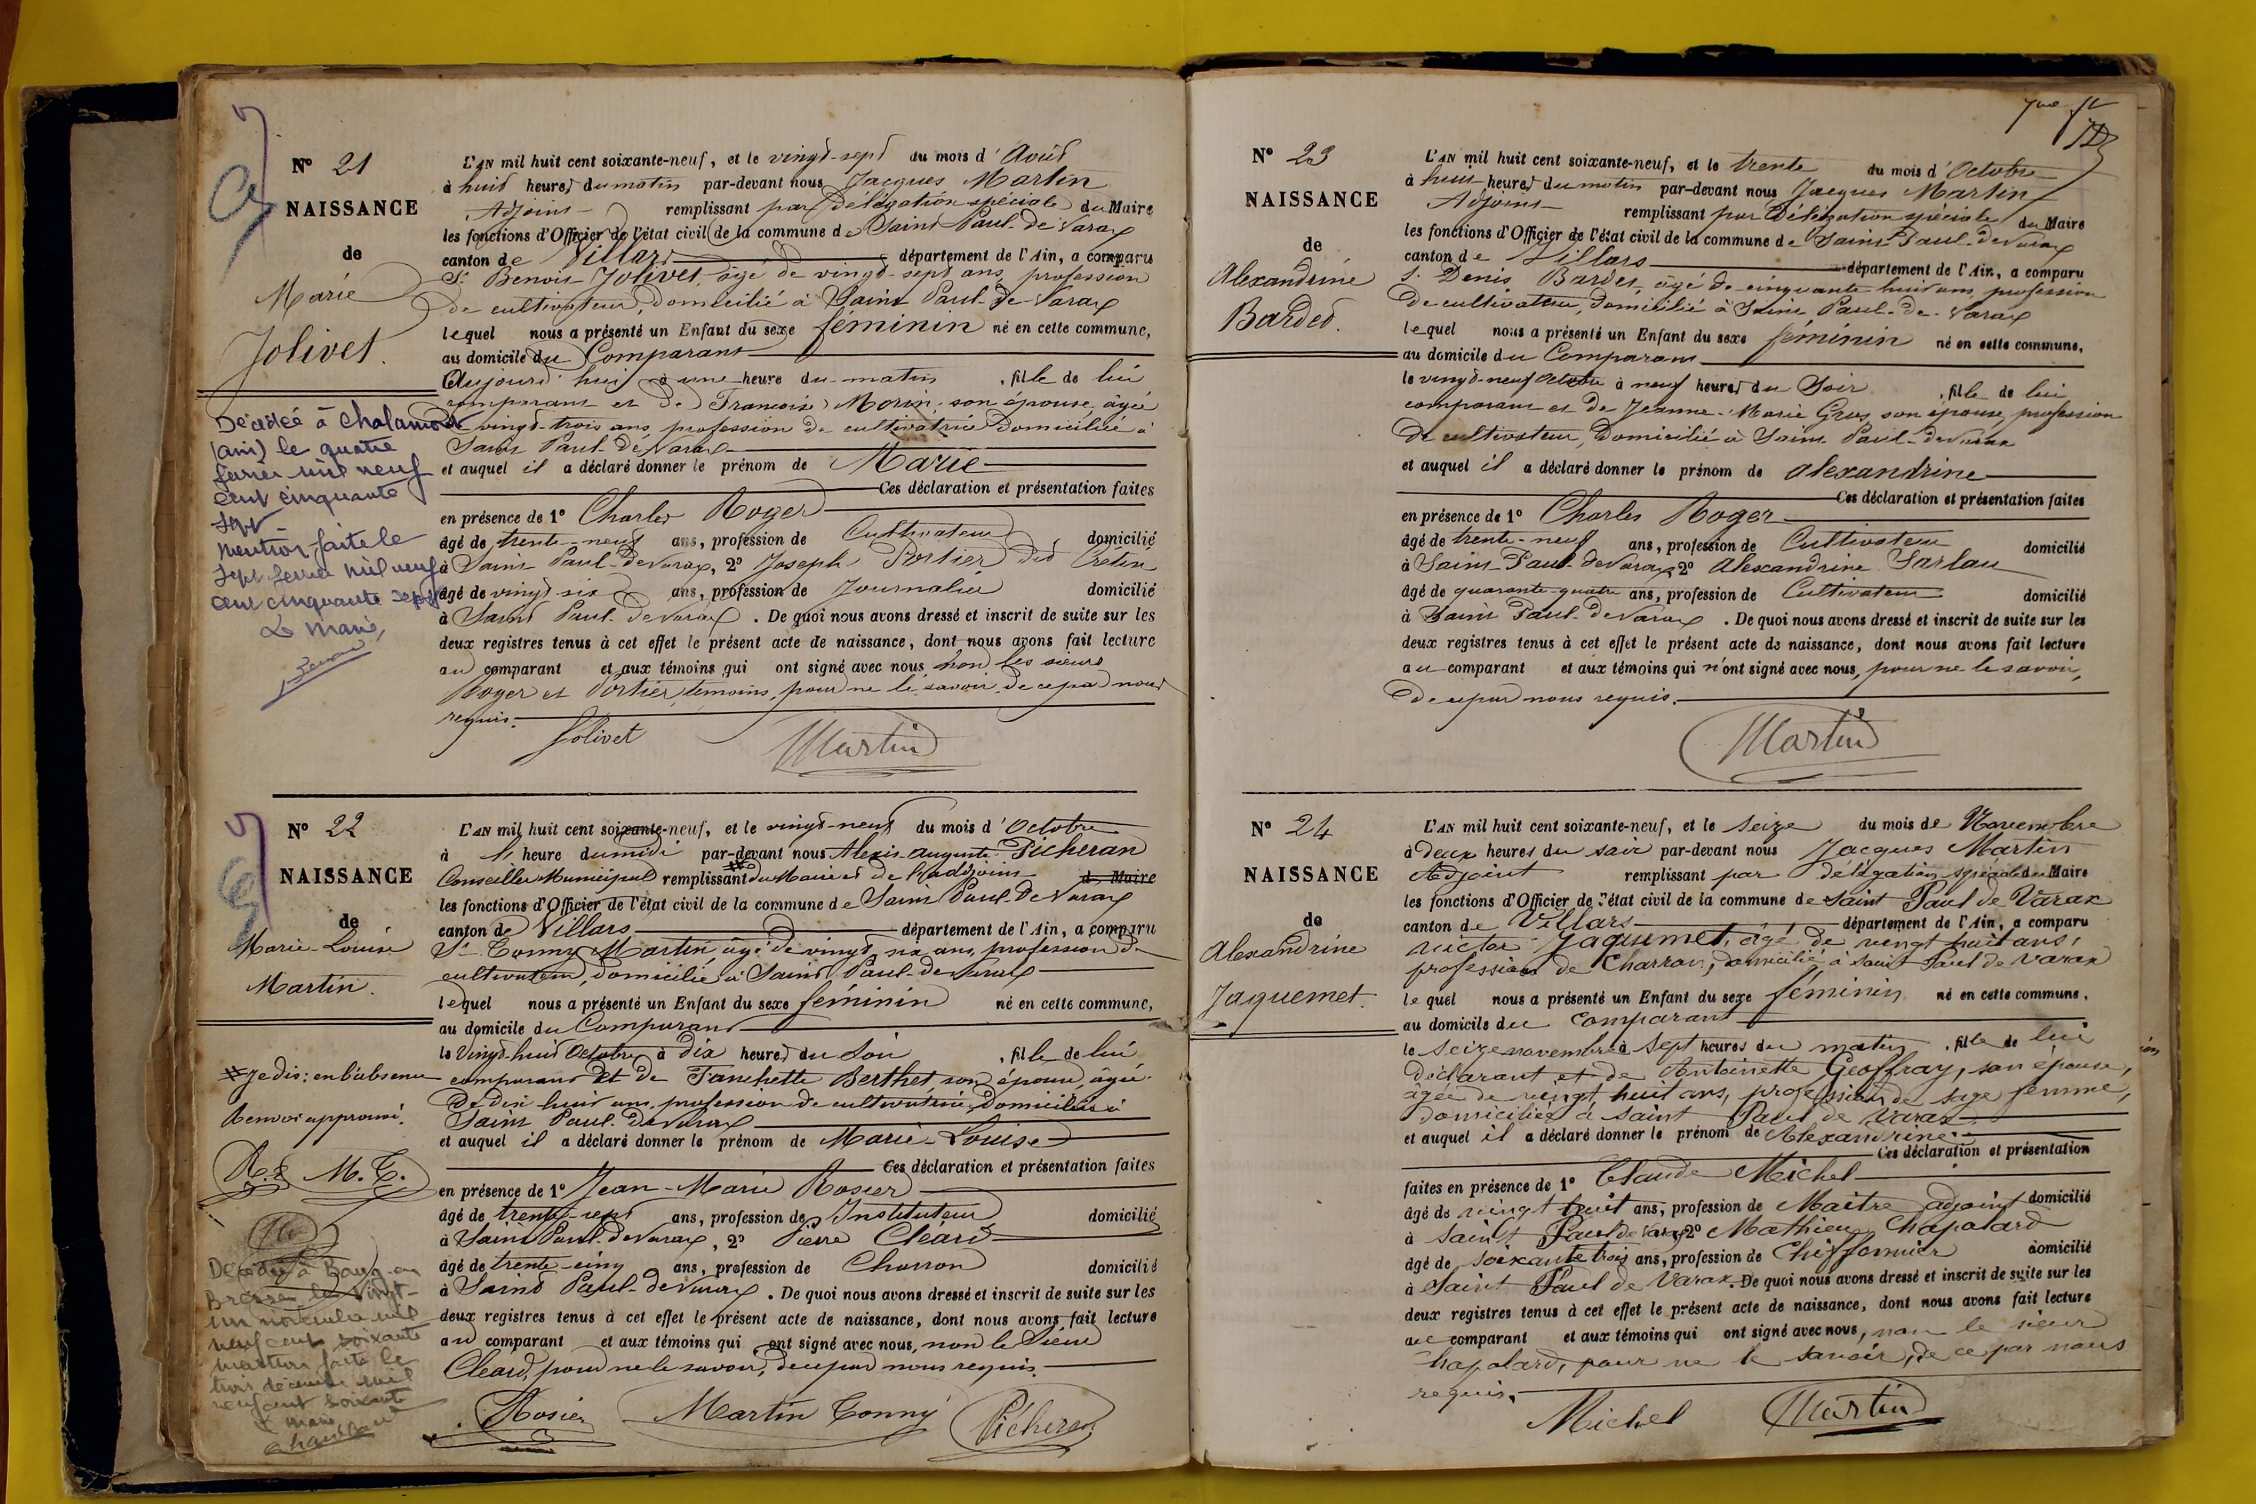 N° 21
NAISSANCE
de
Marie
Jolivet.
L'AN mil huit cent soixante-neuf, et le vingt-sept du mois d'Août
à huit heures du matin par-devant nous Jacques Martin
Adjoint remplissant par délégation spéciale du Maire
les fonctions d'Officier de l'état civil de la commune de Saint Paul-de-Varax
canton de Villars département de l'Ain, a comparu
Sr Benoit Jolivet, âgé de vingt-sept ans, profession
de cultivateur, domicilié à Saint Paul-de-Varax
lequel nous a présenté un Enfant du sexe féminin né en cette commune,
au domicile du Comparant
Aujourd'hui à une heure du matin, fille de lui
comparant et de Françoise Morin, son épouse, âgée
de vingt-trois ans, profession de cultivatrice domiciliée à
Saint Paul-de-Varax
et auquel il a déclaré donner le prénom de Marie
Ces déclaration et présentation faites
en présence de 1° Charles Roger
âgé de trente-neuf ans, profession de Cultivateur domicilié
à Saint Paul-de-Varax, 2° Joseph Portier dit Crétin
âgé de vingt-six ans, profession de Journalier domicilié
à Saint Paul-de-Varax. De quoi nous avons dressé et inscrit de suite sur les
deux registres tenus à cet effet le présent acte de naissance, dont nous avons fait lecture
au comparant et aux témoins qui ont signé avec nous, non les sieurs
Roger et Portier, témoins, pour ne le savoir, de ce par nous
requis.
Jolivet Martin
Décédée à Chalamont
(ain) le quatre
février mil neuf
cent cinquante
sept
mention faite le
sept février mil neuf
cent cinquante sept
Le maire,
N° 22
NAISSANCE
de
Marie-Louise
Martin.
L'AN mil huit cent soixante-neuf, et le vingt-neuf du mois d'Octobre
à heure du midi par-devant nous Alexis-Auguste Picheran
Conseiller Municipal remplissant du Maire et de l'adjoint d Maire
les fonctions d'Officier de l'état civil de la commune de Saint Paul-de-Varax
canton de Villars département de l'Ain, a comparu
Sr Tonny Martin, âgé de vingt-six ans, profession de
cultivateur, domicilié à Saint Paul-de-Varax
lequel nous a présenté un Enfant du sexe féminin né en cette commune,
au domicile du Comparant
le vingt-huit Octobre, à dix heures du soir, fille de lui
comparant et de Fanchette Berthet, son épouse, âgée
de dix-huit ans, profession de cultivatrice, domiciliée à
Saint Paul-de-Varax
et auquel il a déclaré donner le prénom de Marie-Louise
Ces déclaration et présentation faites
en présence de 1° Jean-Marie Rosier
âgé de trente-sept ans, profession de Instituteur domicilié
à Saint Paul-de-Varax, 2° Pierre Cléard
âgé de trente-cinq ans, profession de Charron domicilié
à Saint Paul-de-Varax. De quoi nous avons dressé et inscrit de suite sur les
deux registres tenus à cet effet le présent acte de naissance, dont nous avons fait lecture
au comparant et aux témoins qui ont signé avec nous, non le Sieur
Cléard, pour ne le savoir, de ce par nous requis.
Rosier Martin Tonny Picheran
# Je dis: en l'absence
Renvoi approuvé.
M. T.
Décédée à Bourg-en
Bresse le vingt-
un novembre mil
neuf cent soixante
mention faite le
trois décembre mil
neuf cent soixante
Le maire
N° 23
NAISSANCE
de
Alexandrine
Bardet.
L'AN mil huit cent soixante-neuf, et le trente du mois d'Octobre
à huit heures du matin par-devant nous Jacques Martin
Adjoint remplissant par délégation spéciale du Maire
les fonctions d'Officier de l'état civil de la commune de Saint-Paul-de-Varax
canton de Villars département de l'Ain, a comparu
S. Denis Bardet, âgé de cinquante-huit ans, profession
de cultivateur, domicilié à Saint Paul-de-Varax
lequel nous a présenté un Enfant du sexe féminin né en cette commune,
au domicile du Comparant
le vingt-neuf Octobre à neuf heures du Soir, fille de lui
comparant et de Jeanne-Marie Gros, son épouse, profession
de cultivateur, domicilié à Saint Paul-de-Varax
et auquel il a déclaré donner le prénom de Alexandrine
Ces déclaration et présentation faites
en présence de 1° Charles Roger
âgé de trente-neuf ans, profession de Cultivateur domicilié
à Saint-Paul-de-Varax, 2° Alexandrine Sarlan
âgé de quarante-quatre ans, profession de Cultivateur domicilié
à Saint Paul-de-Varax. De quoi nous avons dressé et inscrit de suite sur les
deux registres tenus à cet effet le présent acte de naissance, dont nous avons fait lecture
au comparant et aux témoins qui n'ont signé avec nous, pour ne le savoir,
de ce par nous requis.
Martin
N° 24
NAISSANCE
de
Alexandrine
Jaquemet.
L'AN mil huit cent soixante-neuf, et le seize du mois de Novembre
à deux heures du soir par-devant nous Jacques Martin
Adjoint remplissant par délégation spéciale du Maire
les fonctions d'Officier de l'état civil de la commune de Saint Paul de Varax
canton de Villars département de l'Ain, a comparu
Victor Jaquemet, âgé de vingt huit ans,
profession de Charron, domicilié à Saint Paul de Varax
lequel nous a présenté un Enfant du sexe féminin né en cette commune,
au domicile du comparant
le seize novembre à sept heures du matin, fille de lui
déclarant et de Antoinette Geoffray, son épouse,
âgée de vingt huit ans, profession de sage femme,
domiciliée à Saint Paul de Varax
et auquel il a déclaré donner le prénom de Alexandrine
Ces déclaration et présentation
faites en présence de 1° Claude Michel
âgé de vingt huit ans, profession de Maitre adjoint domicilié
à Saint Paul de Varax, 2° Mathieu Chapolard
âgé de soixante trois ans, profession de Chiffonnier domicilié
à Saint Paul de Varax. De quoi nous avons dressé et inscrit de suite sur les
deux registres tenus à cet effet le présent acte de naissance, dont nous avons fait lecture
au comparant et aux témoins qui ont signé avec nous, non le sieur
Chapolard, pour ne le savoir, de ce par nous
requis.
Michel Martin